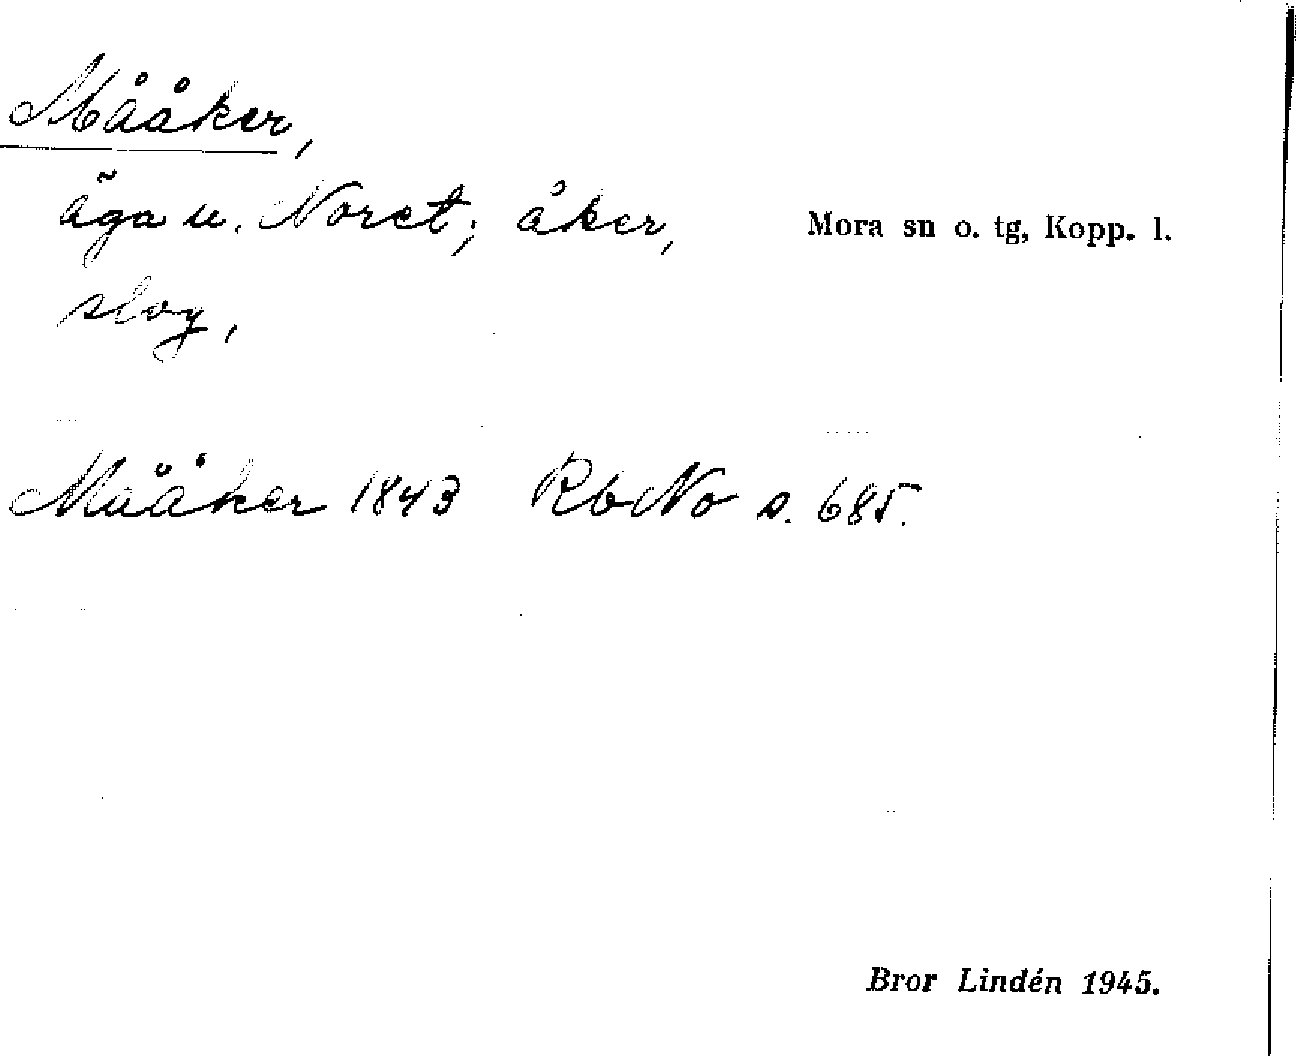 Mååker,
äga u. Noret; åker,
Mora sn o. tg, Kopp. l.
slog,
Maåker 1843 RbNo s. 685.
Bror Lindén 1945.